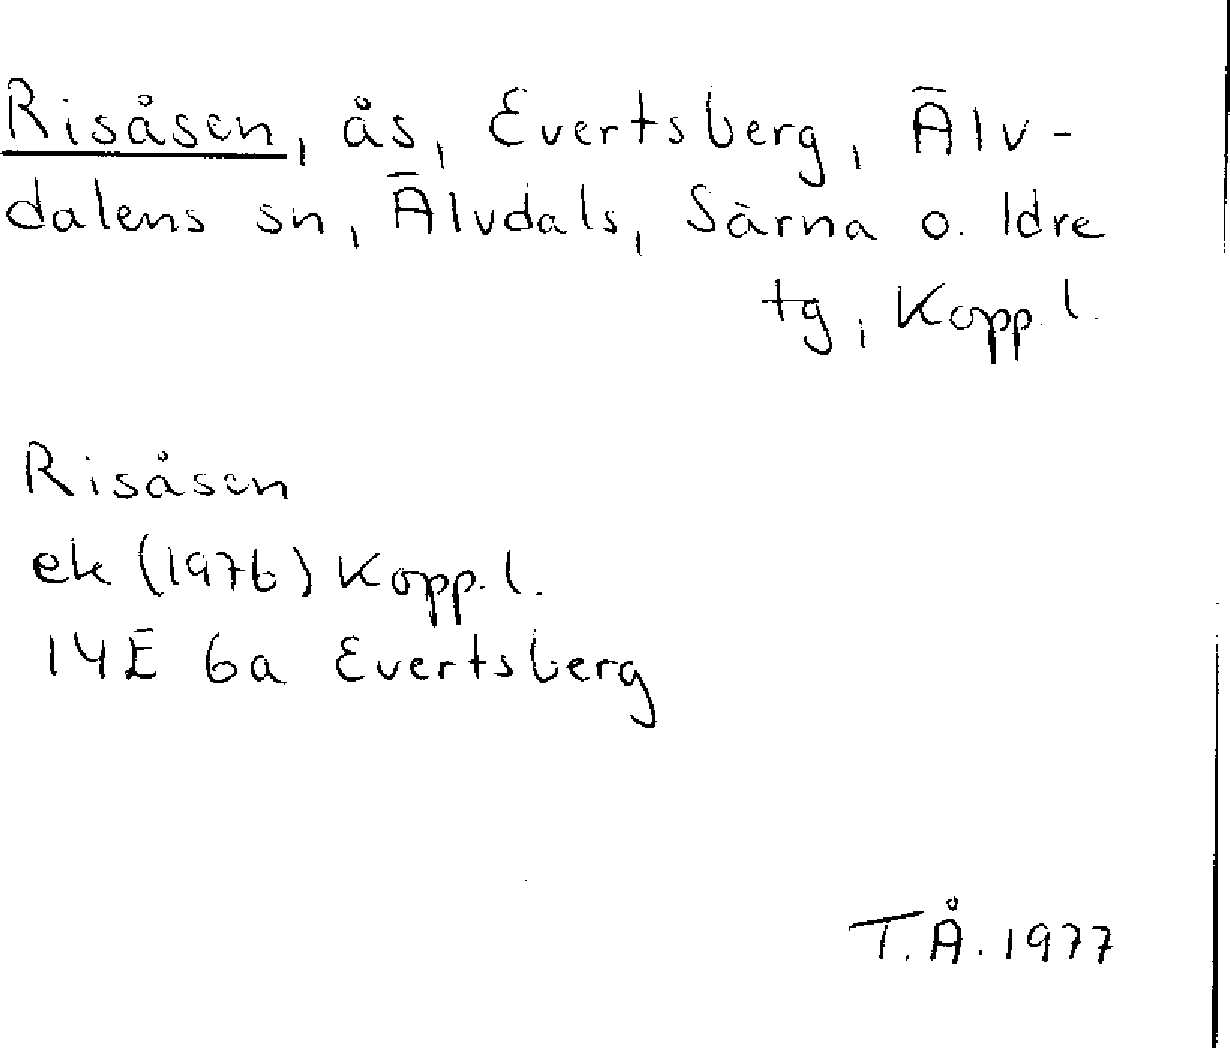 Risåsen, ås, Evertsberg, Älv-
dalens sn, Älvdals, Särna o. Idre
tg, Kopp. l.
Risåsen
ek (1976) Kopp. l.
14E 6a Evertsberg
T.Å. 1977